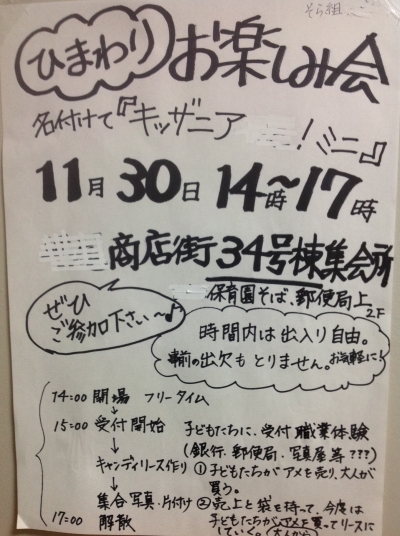 そら組
ひまわり お楽しみ会
名付けて『キッザニア ！ミニ』
11月30日 14時〜17時
商店街 34号棟集会所
保育園そば、郵便局上 2F
ぜひ
ご参加下さい〜♪
時間内は出入り自由。
事前の出欠もとりません。お気軽に！
14:00 開場 フリータイム
↓
15:00 受付開始 子どもたちに、受付 職業体験
↓ (銀行、郵便局、写真屋等???)
キャンディリース作り ①子どもたちがアメを売り、大人が
↓ 買う。
集合写真・片付け ②売上と袋を持って、今度は
17:00 解散 子どもたちがアメを買ってリースに
していく。(大人から